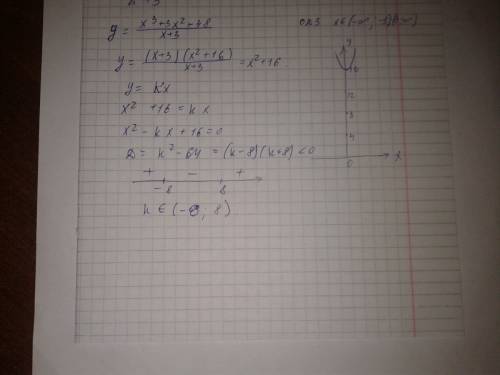 y = x³+3x²+48 / x+3
y = (x+3)(x²+16) / x+3 = x²+16
y = kx
x² +16 = kx
x² - kx + 16 = 0
D = k² - 64 = (k-8)(k+8) < 0
+ - +
-8 8
k ∈ (-8; 8)
y
16
4
0
x